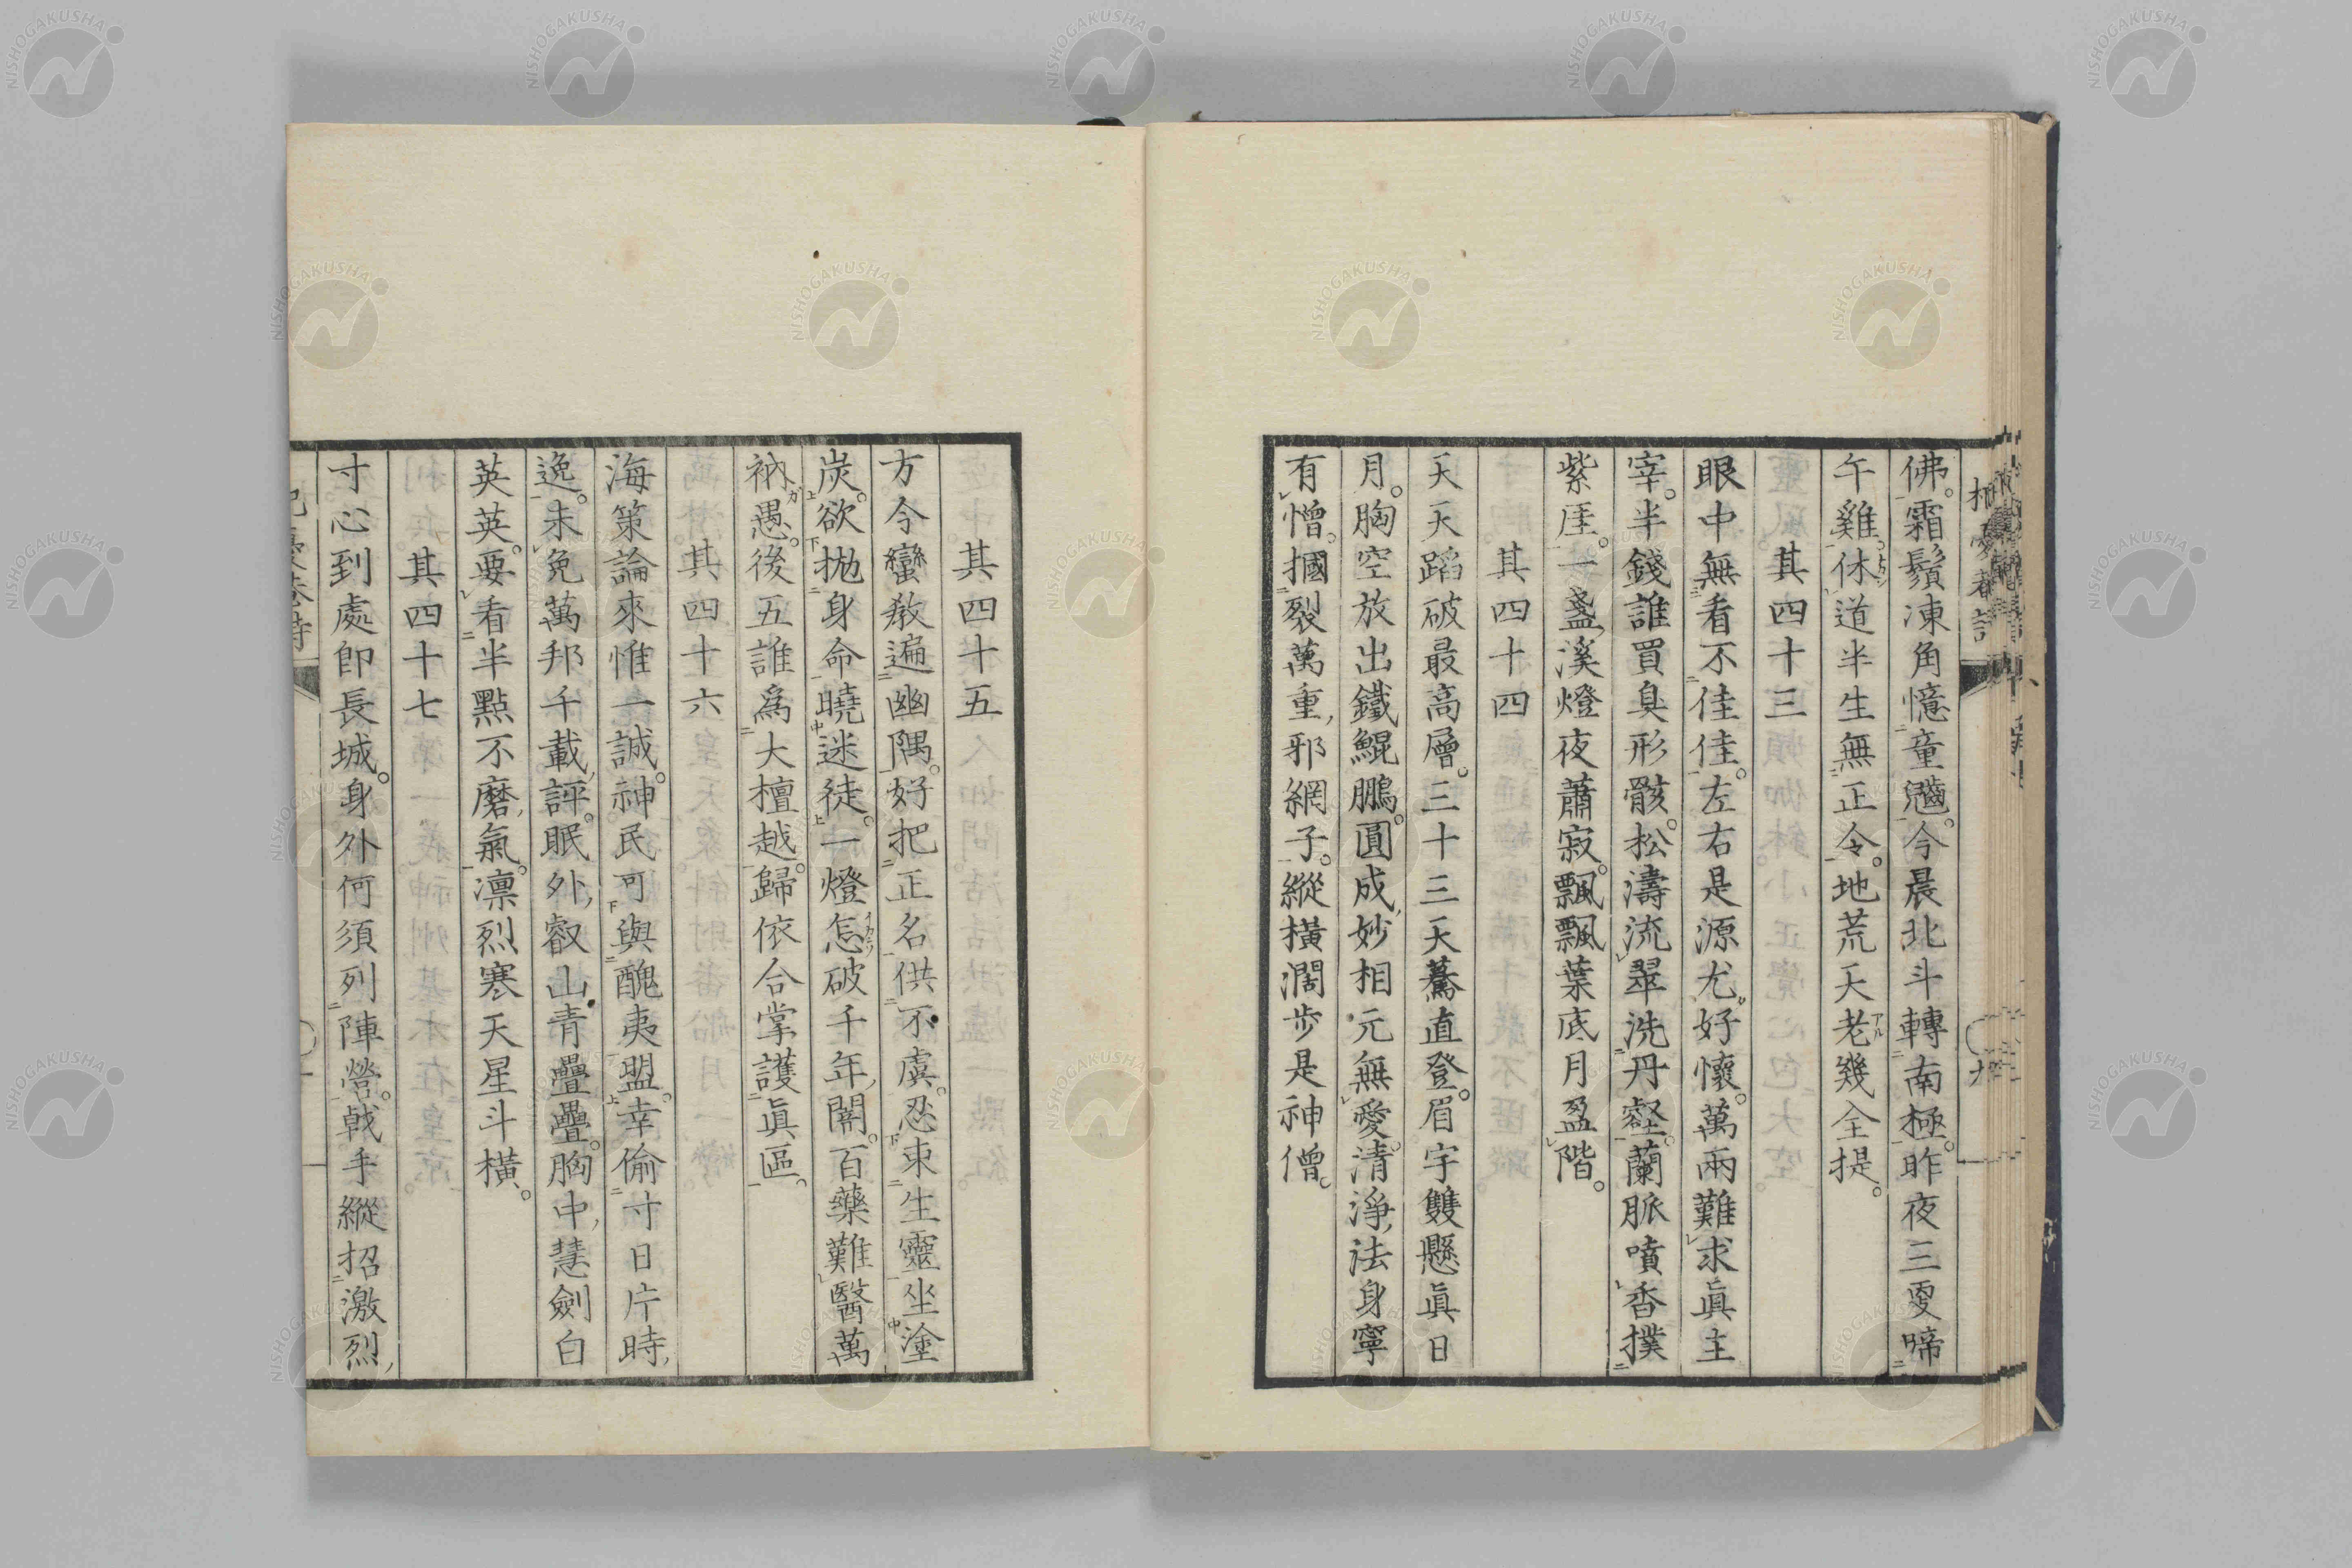 佛。霜鬚凍角憶童𩴺。今晨北斗轉南極。昨夜三更啼
午雞。休道半生無正令。地荒天老幾全提。
其四十三
眼中無看不佳佳。左右是源尤好懷。萬兩難求眞主
宰。半錢誰買臭形骸。松濤流翠洗丹壑。蘭脈噴香撲
紫厓。一盞溪燈夜蕭寂。飄飄葉底月盈階。
其四十四
天天天蹈破最高層。三十三天驀直登。眉宇雙懸眞日
月。胸空放出鐵鯤鵬。圓成妙相元無愛。清淨法身寧
有憎。摑裂萬重邪網子。縱橫濶步是神僧。
其四十五
方今蠻教遍幽隅。好把正名供不虞。忍束生靈坐塗
炭。欲抛身命曉迷徒。一燈怎破千年闇。百藥難醫萬
衲愚。後五誰爲大檀越。歸依合掌護眞區。
其四十六
海策論來惟一誠。神民可與醜夷盟。幸偷寸日片時
逸。未免萬邦千載評。眠外叡山青疊疊。胸中慧劍白
英英。要看半點不磨氣。凛烈寒天星斗橫。
其四十七
寸心到處即長城。身外何須列陣營。戟手縱招激烈
NISHOGAKUSHA